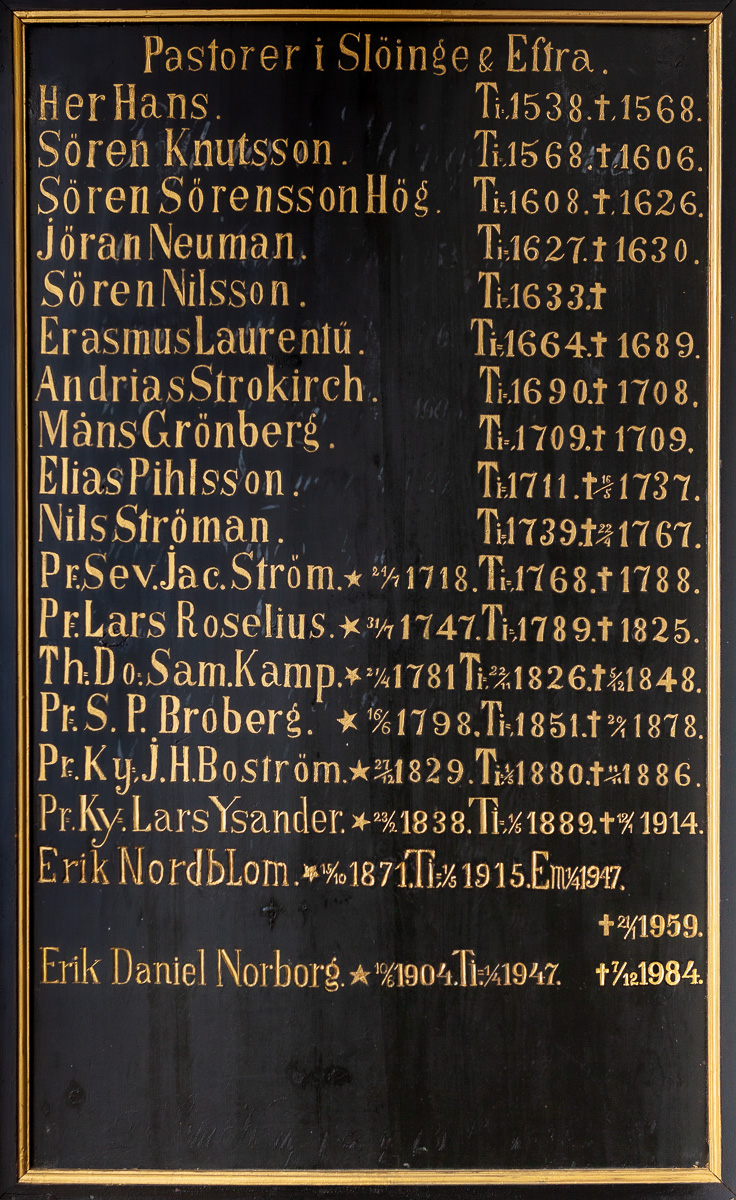 Pastorer i Slöinge & Eftra.
Her Hans. Ti:1538.✝.1568.
Sören Knutsson. Ti:1568.✝1606.
Sören Sörensson Hög. Ti:1608.✝.1626.
Jöran Neuman. Ti:1627.✝1630.
Sören Nilsson. Ti:1633.✝
Erasmus Laurentü. Ti:1664.✝1689.
Andrias Strokirch. Ti:1690.✝1708.
Måns Grönberg. Ti:1709.✝1709.
Elias Pihlsson. Ti:1711.✝16/5 1737.
Nils Ströman. Ti:1739.✝22/4 1767.
Pr.Sev.Jac.Ström.★ 24/7 1718.Ti:1768.✝1788.
Pr:Lars Roselius.★ 31/7 1747.Ti:1789.✝1825.
Th:Do:Sam.Kamp.★ 21/4 1781 Ti:22/11 1826.✝5/12 1848.
Pr:S.P.Broberg. ★ 16/6 1798.Ti:1851.✝ 20/1 1878.
Pr:Ky:J.H.Boström.★27/12 1829.Ti:1/5 1880.✝11/11 1886.
Pr.Ky:Lars Ysander.★23/2 1838.Ti:1/5 1889.✝12/1 1914.
Erik Nordblom.★15/10 1871.Ti:1/5 1915.Em1/4 1947.
✝21/1 1959.
Erik Daniel Norborg.★10/6 1904.Ti:1/4 1947. ✝7/12 1984.